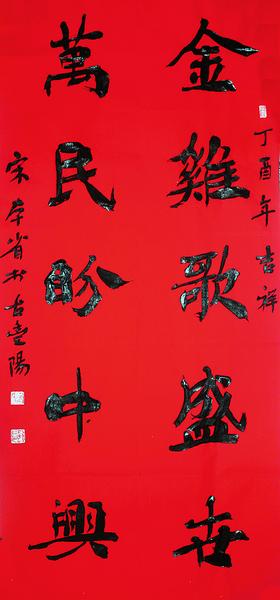 丁酉年吉祥
金雞歌盛世
萬民盼中興
宋孝省於古壹陽